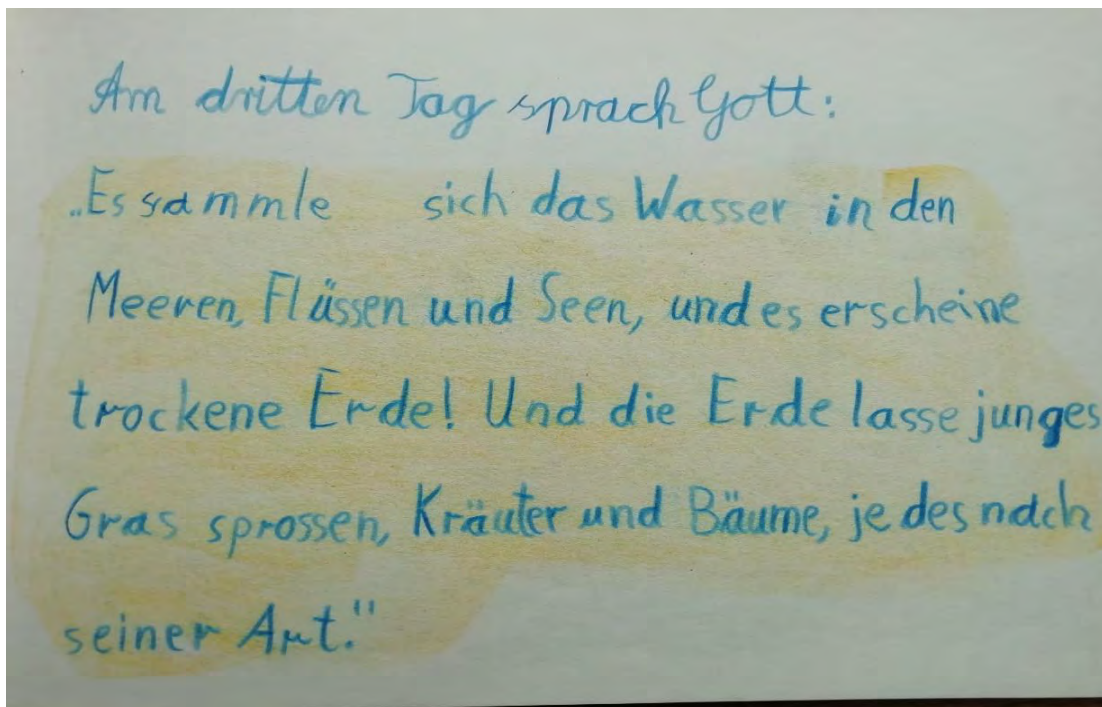 Am dritten Tag sprach Gott:
„Es sammle sich das Wasser in den
Meeren, Flüssen und Seen, und es erscheine
trockene Erde! Und die Erde lasse junges
Gras sprossen, Kräuter und Bäume, jedes nach
seiner Art."